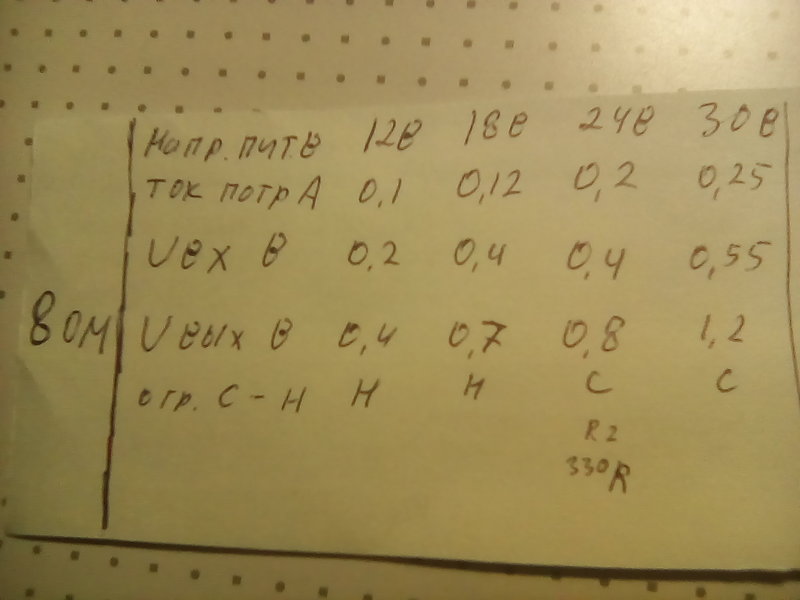 Напр. пит. В 12В 18В 24В 30В
ток потр А 0,1 0,12 0,2 0,25
U вх В 0,2 0,4 0,4 0,55
8 ом U вых В 0,4 0,7 0,8 1,2
огр. С - Н Н Н С С
R2
330R